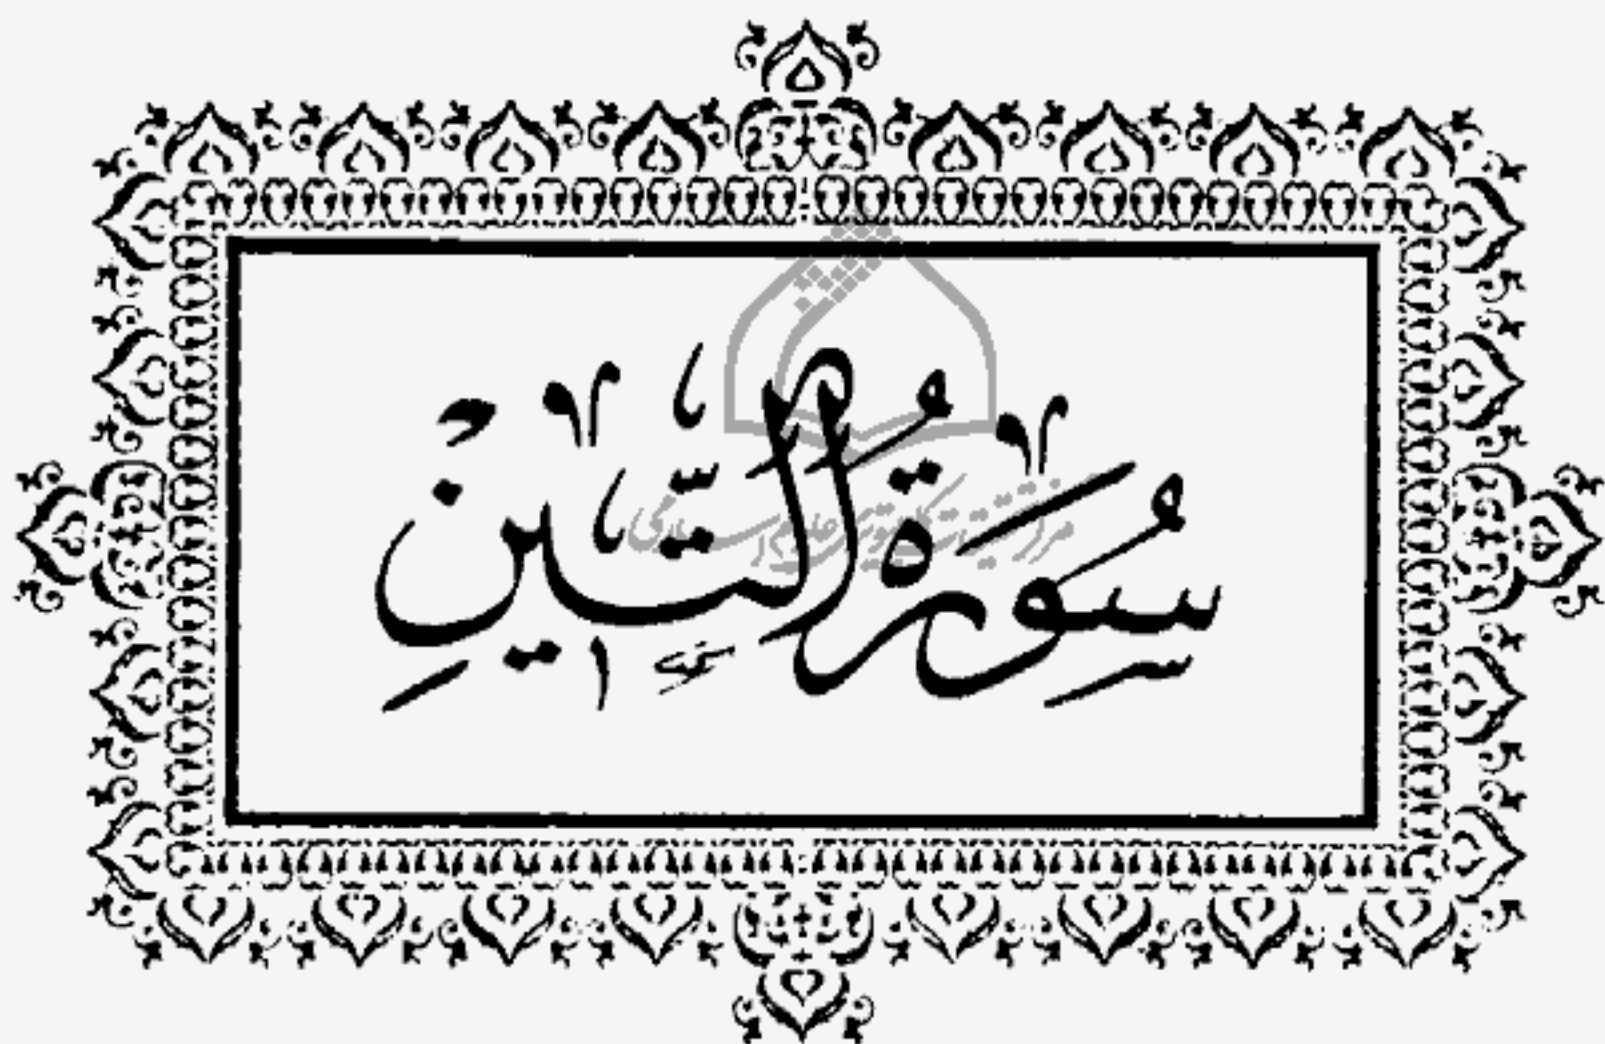 سُورَةُ التِّينِ
مرکز تحقیقات کامپیوتری علوم اسلامی